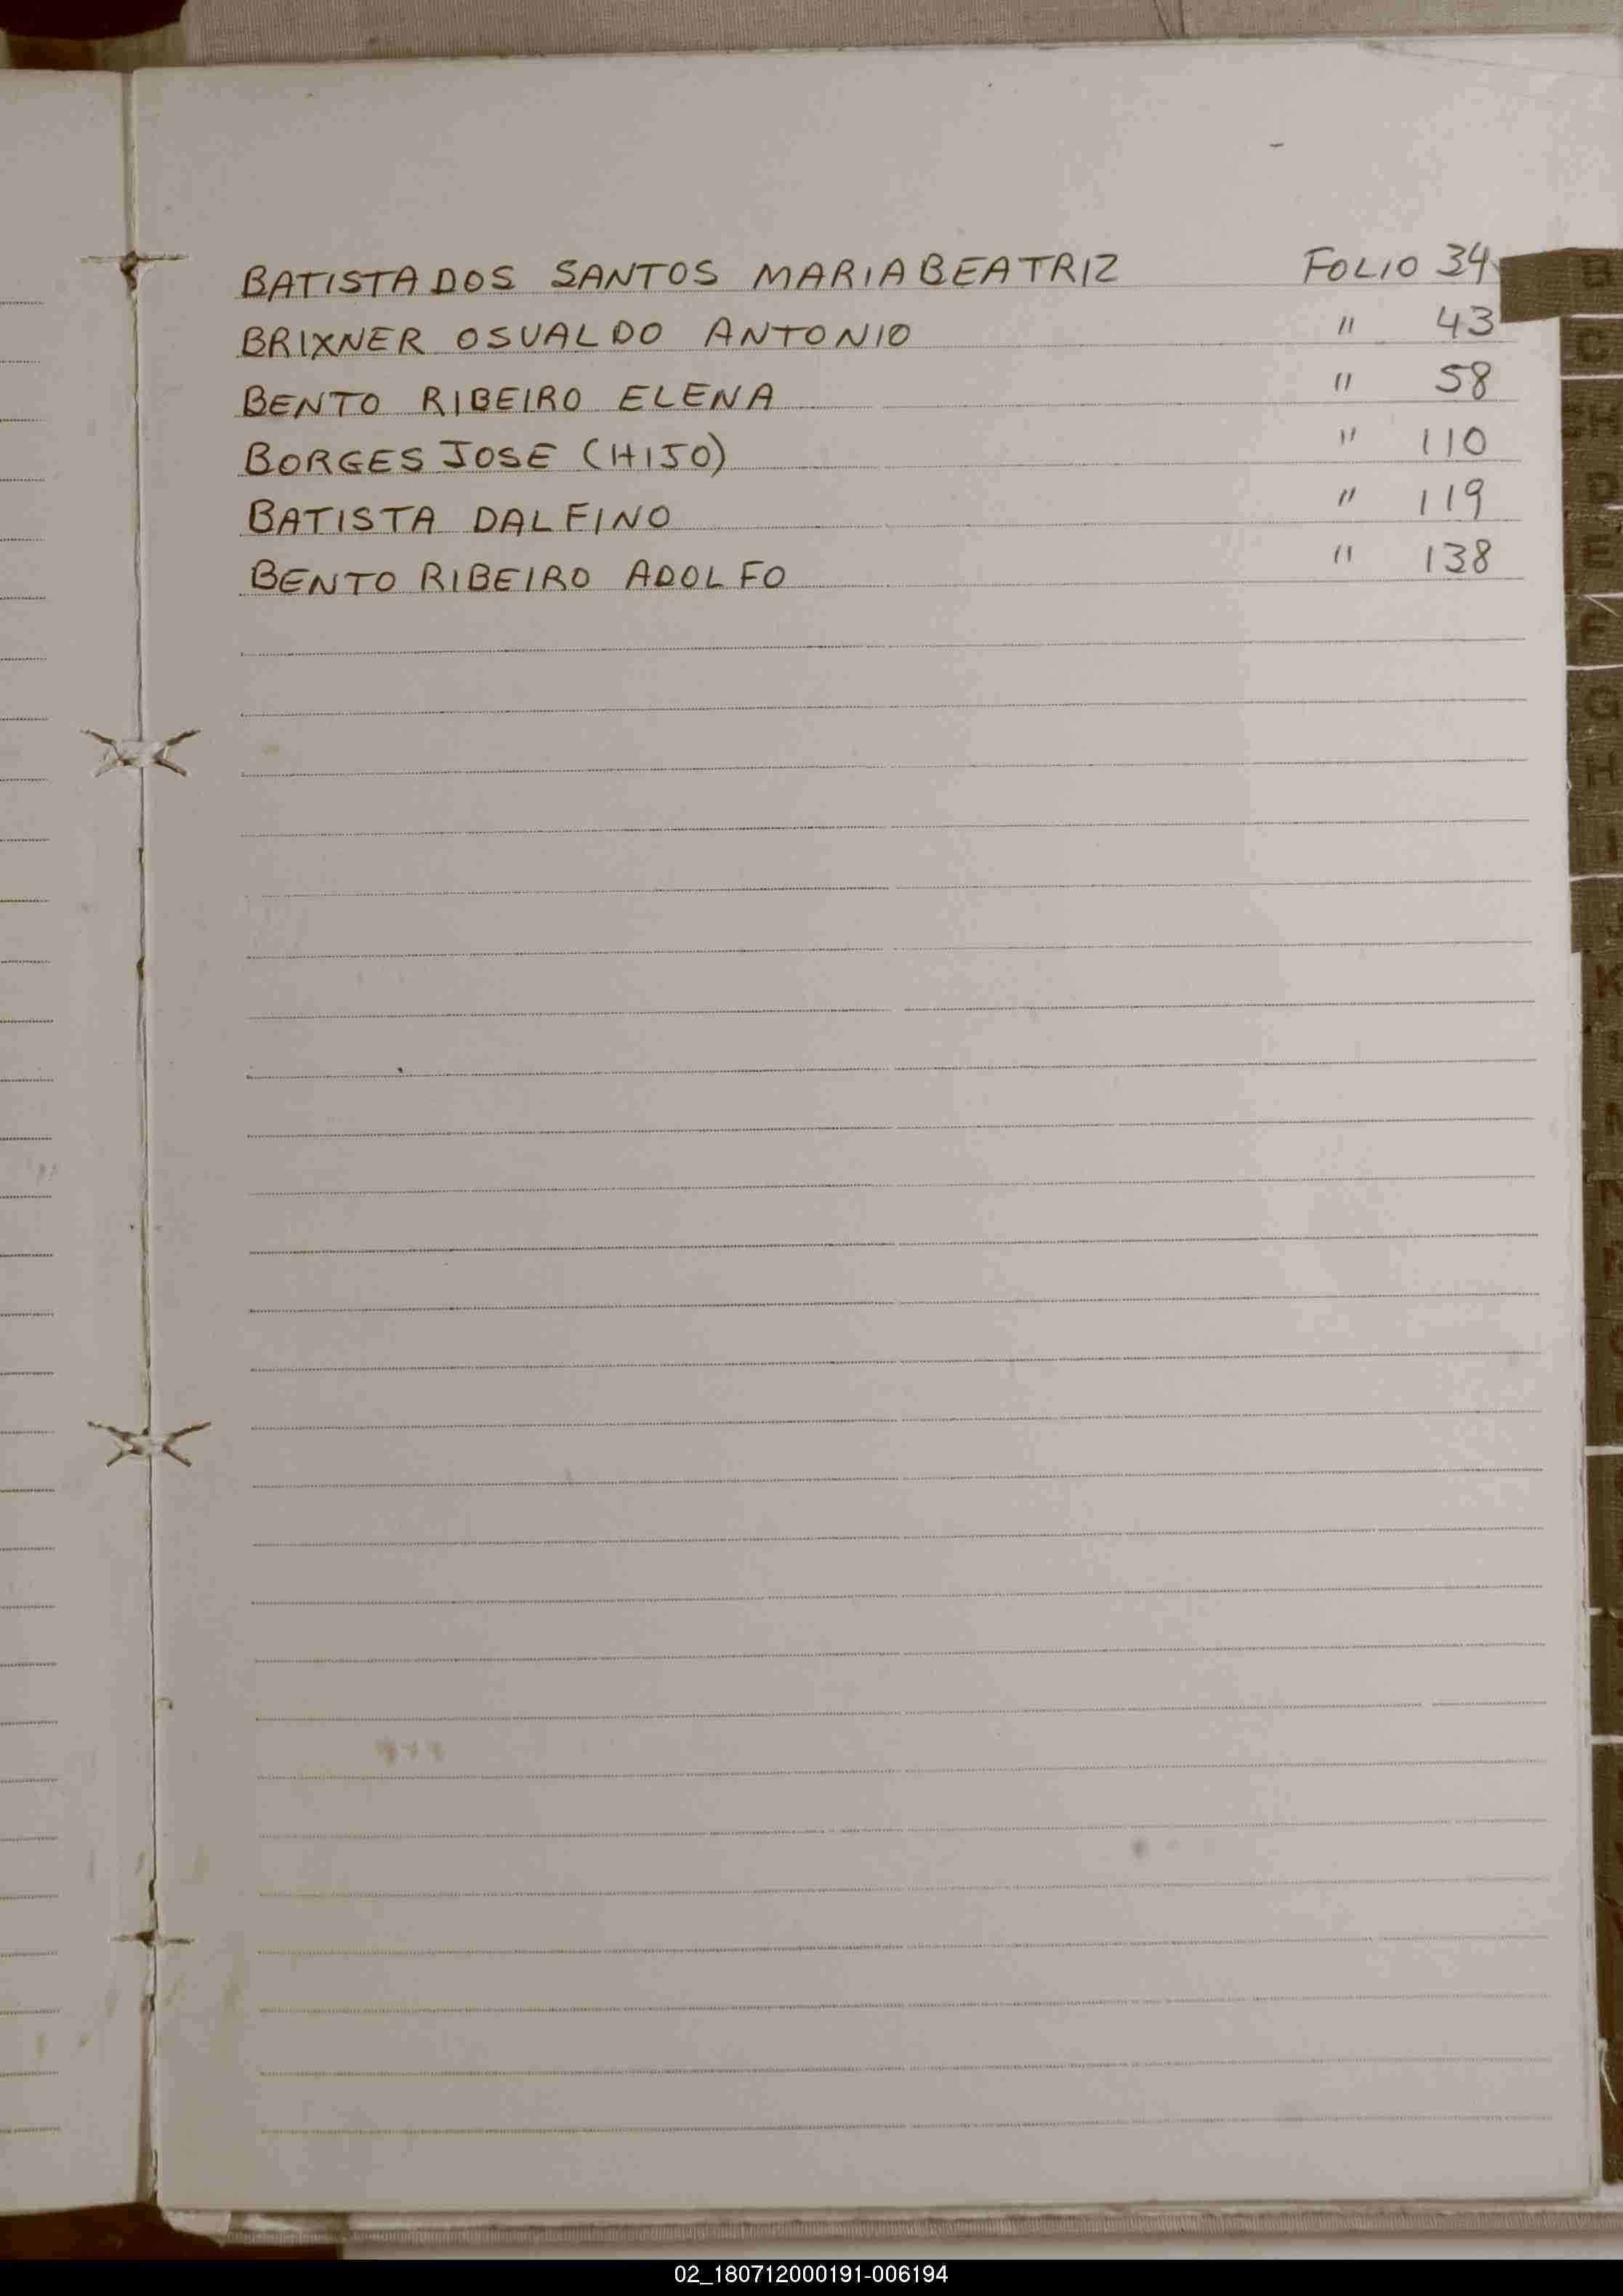 BATISTA DOS SANTOS MARIA BEATRIZ FOLIO 34
BRIXNER OSUALDO ANTONIO " 43
BENTO RIBEIRO ELENA " 58
BORGES JOSE (HIJO) " 110
BATISTA DALFINO " 119
BENTO RIBEIRO ADOLFO " 138
B
C
CH
D
E
F
G
H
I
K
02_180712000191-006194